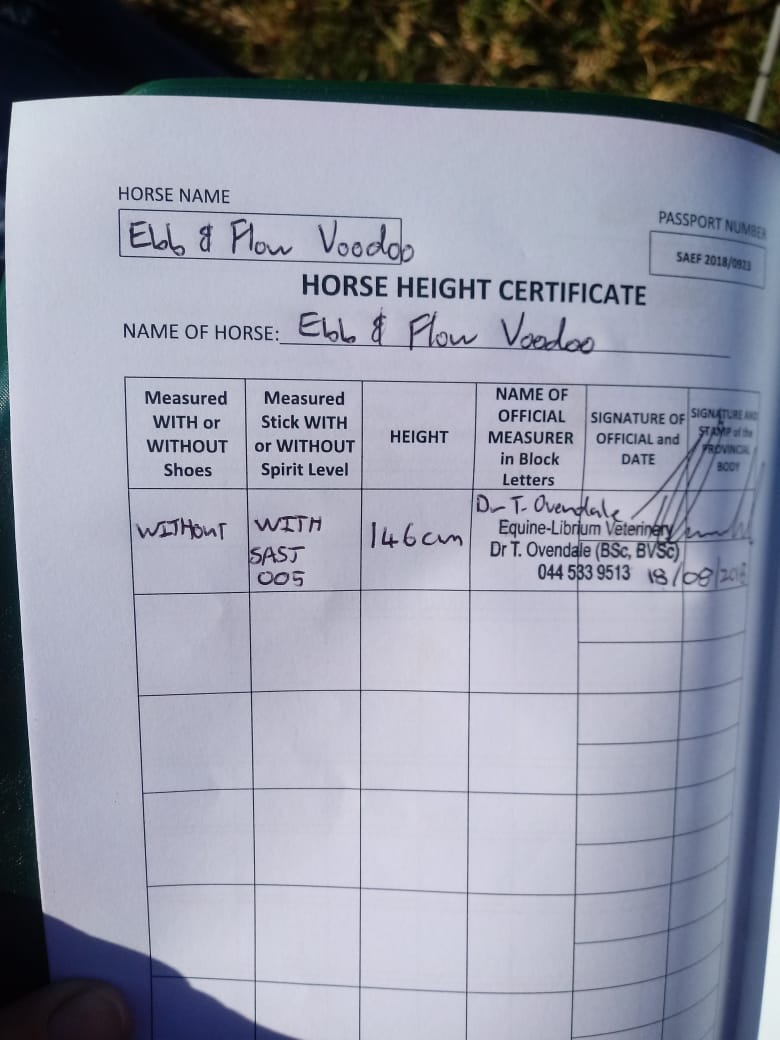 HORSE NAME
Ebb & Flow Voodoo
PASSPORT NUMBER
SAEF 2018/0923
HORSE HEIGHT CERTIFICATE
NAME OF HORSE: Ebb & Flow Voodoo
Measured WITH or WITHOUT Shoes
Measured Stick WITH or WITHOUT Spirit Level
HEIGHT
NAME OF OFFICIAL MEASURER in Block Letters
SIGNATURE OF OFFICIAL and DATE
SIGNATURE AND STAMP of the PROVINCIAL BODY
WITHOUT
WITH
SAST
005
146cm
Dr T. Ovendale
Equine-Librium Veterinery
Dr T. Ovendale (BSc, BVSc)
044 533 9513
18/08/